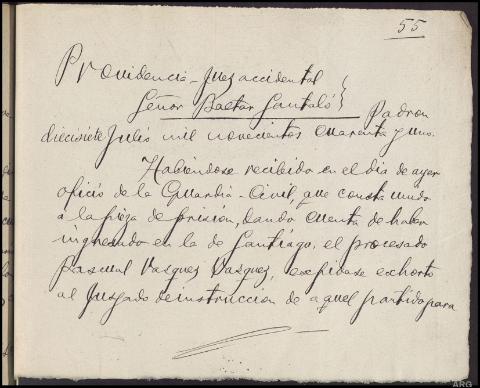 55
Providencia - Juez accidental
Señor Baltar Santaló } Padron
diecisiete Julio mil novecientos cuarenta y uno.
Habiendose recibido en el dia de ayer
oficio de la Guardia - Civil, que consta unido
a la pieza de prisión, dando cuenta de haber
ingresado en la de Santiago, el procesado
Pascual Vasquez Vasquez, expidase exhorto
al Juzgado de instruccion de aquel partido para
ARG